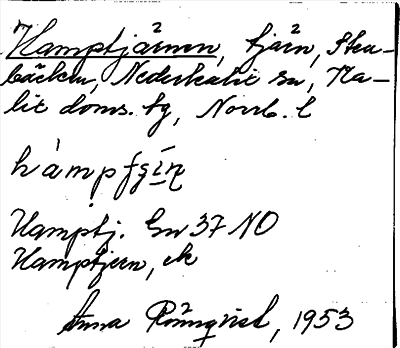 Hamptjärnen, tjärn, Sten-
bäcken, Nederkalix sn, Ka-
lix doms. tg, Norrb. l
hampfgin
Hamptj. Gn 37 NO
Hamptjern, ek
Anna Rönnqvist, 1953